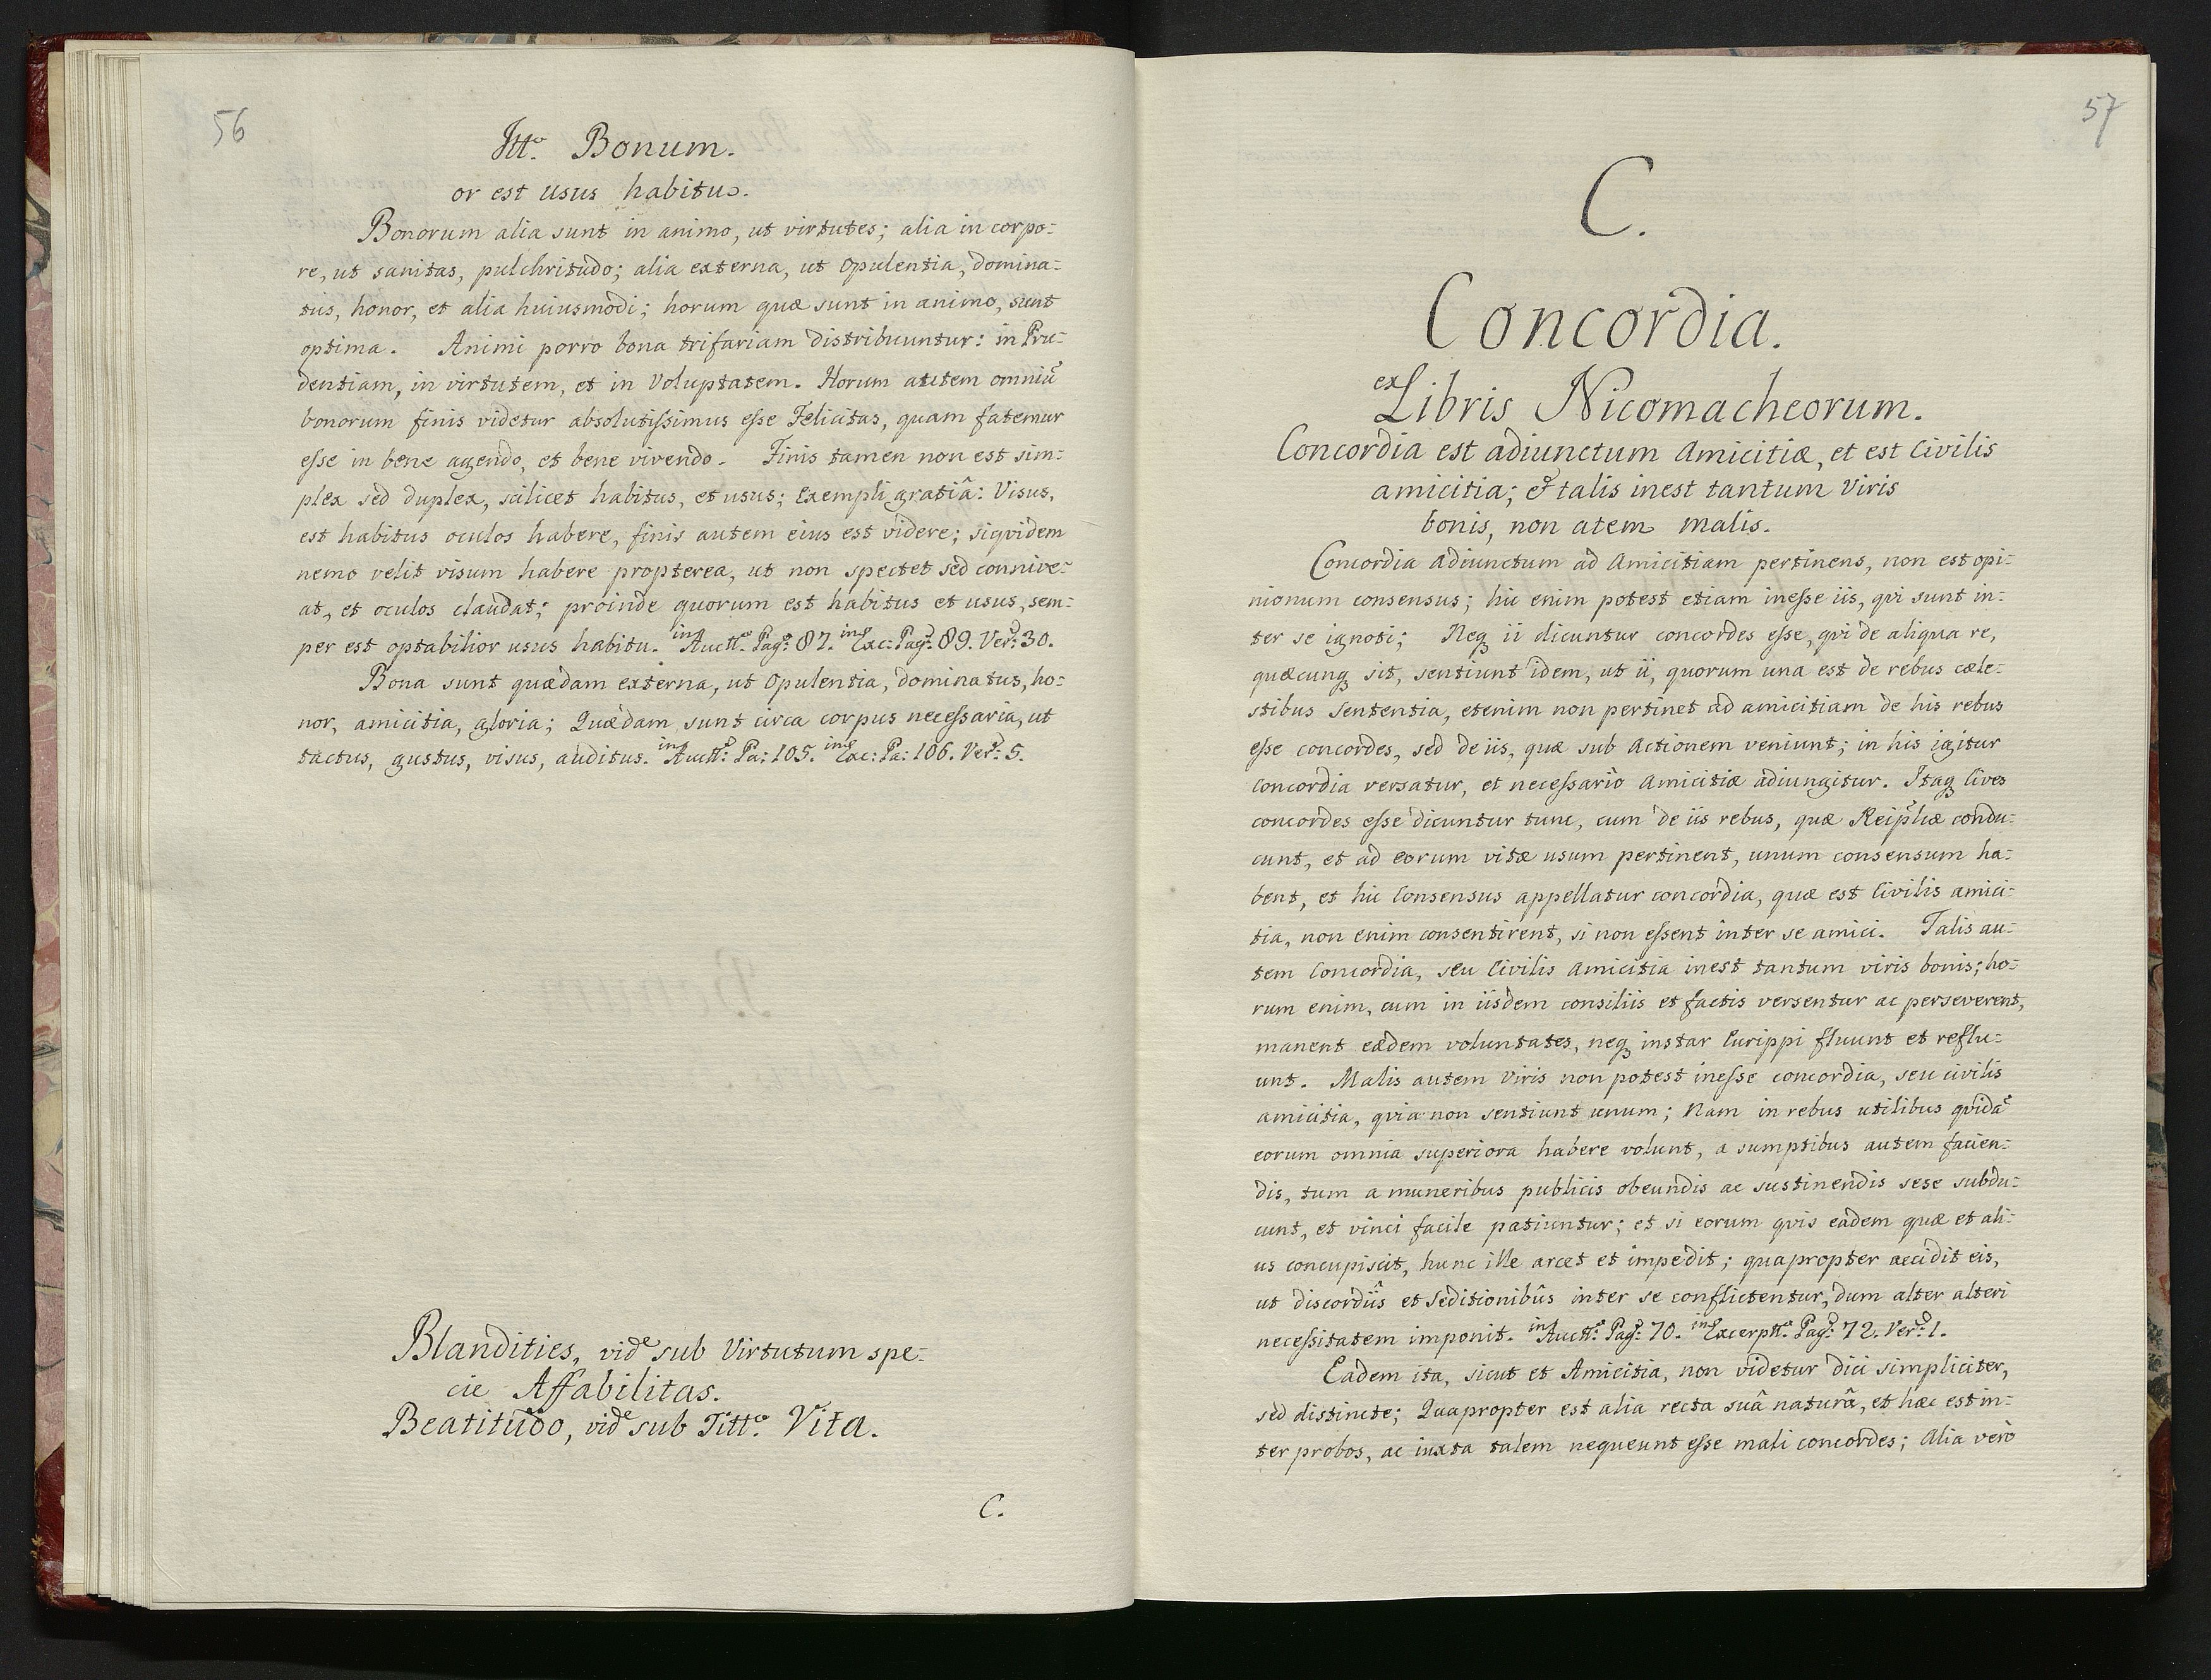 56
Titt.o Bonum.
or est usus habitu.
Bonorum alia sunt in animo, ut virtutes; alia in corpo-
re, ut sanitas, pulchritudo; alia externa, ut Opulentia, domina-
tus, honor, et alia huiusmodi; horum quæ sunt in animo, sunt
optima. Animi porro bona trifariam distribuuntur: in Pru-
dentiam, in virtutem, et in Voluptatem. Horum autem omniũ
bonorum finis videtur absolutissimus esse Felicitas, quam fatemur
esse in bene agendo, et bene vivendo. Finis tamen non est sim-
plex sed duplex, scilicet habitus, et usus; Exempli gratiâ: Visus,
est habitus oculos habere, finis autem eius est videre; siqvidem
nemo velit visum habere propterea, ut non spectet sed connive-
at, et oculos claudat; proinde quorum est habitus et usus, sem-
per est optabilior usus habitu. in Auctt.e Pag: 87. in Exc: Pag: 89. Ver: 30.
Bona sunt quædam externa, ut Opulentia, dominatus, ho-
nor, amicitia, gloria; Quædam sunt circa corpus necessaria, ut
tactus, gustus, visus, auditus. in Auctt: Pa: 105. in Exc: Pa: 106. Ver: 5.
Blandities, vide sub Virtutum spe-
cie Affabilitas.
Beatitudo, vide sub Titt.o Vita.
C.
57
C.
Concordia.
ex Libris Nicomacheorum.
Concordia est adiunctum Amicitiæ, et est Civilis
amicitia; & talis inest tantum Viris
bonis, non atem malis.
Concordia Adiunctum ad Amicitiam pertinens, non est opi-
nionum consensus; hic enim potest etiam inesse iis, qvi sunt in-
ter se ignoti; Neq ii dicuntur concordes esse, qvi de aliqua re,
quæcunq sit, sentiunt idem, ut ii, quorum una est de rebus cæle-
stibus Sententia, etenim non pertinet ad amicitiam de his rebus
esse concordes, sed de iis, quæ sub Actionem veniunt; in his igitur
Concordia versatur, et necessariò Amicitiæ adiungitur. Itaq Cives
concordes esse dicuntur tunc, cum de iis rebus, quæ Reiplicæ condu-
cunt, et ad eorum vitæ usum pertinent, unum consensum ha-
bent, et hic Consensus appellatur concordia, quæ est Civilis amici-
tia, non enim consentirent, si non essent inter se amici. Talis au-
tem Concordia, seu Civilis Amicitia inest tantum viris bonis; ho-
rum enim, cum in iisdem consiliis et factis versentur ac perseverent,
manent eædem voluntates, neq instar Eurippi fluunt et reflu-
unt. Malis autem Viris non potest inesse concordia, seu civilis
amicitia, qvia non sentiunt unum; Nam in rebus utilibus qvidã
eorum omnia superiora habere volunt, a sumptibus autem facien-
dis, tum a muneribus publicis obeundis ac sustinendis sese subdu-
cunt, et vinci facile patiuntur; et si eorum qvis eadem quæ et ali-
us concupiscit, hunc ille arcet et impedit; quapropter accidit eis,
ut discordiîs et Seditionibûs inter se conflictentur, dum alter alteri
necessitatem imponit. in Auctt.e Pag: 70. in Excerptt.e Pag: 72. Ver: 1.
Eadem ita, sicut et Amicitia, non videtur dici simpliciter,
sed distincte; Quapropter est alia recta suâ naturâ, et hæc est in-
ter probos, ac iuxta talem nequeunt esse mali concordes; Alia verò